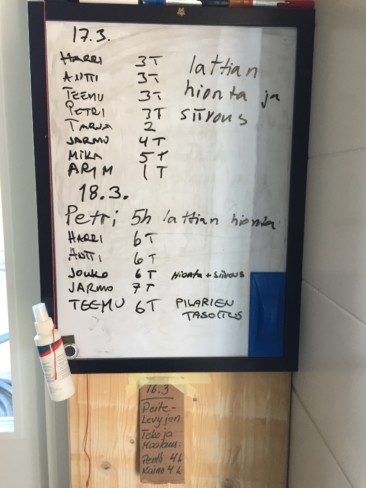 17.3.
HARRI 3T lattian
ANTTI 3T hionta ja
TEEMU 3T siivous
PETRI 3T
TARJA 2
JARMO 4T
MIKA 5T
ARI M 1T
18.3.
Petri 5h lattian hionta
HARRI 6T
ANTTI 6T
JOUKO 6T HIONTA + SIIVOUS
JARMO 7T
TEEMU 6T PILARIEN
TASOITUS
16.3
Peite-
Levyjen
Teko ja
Pentti 4h
4h